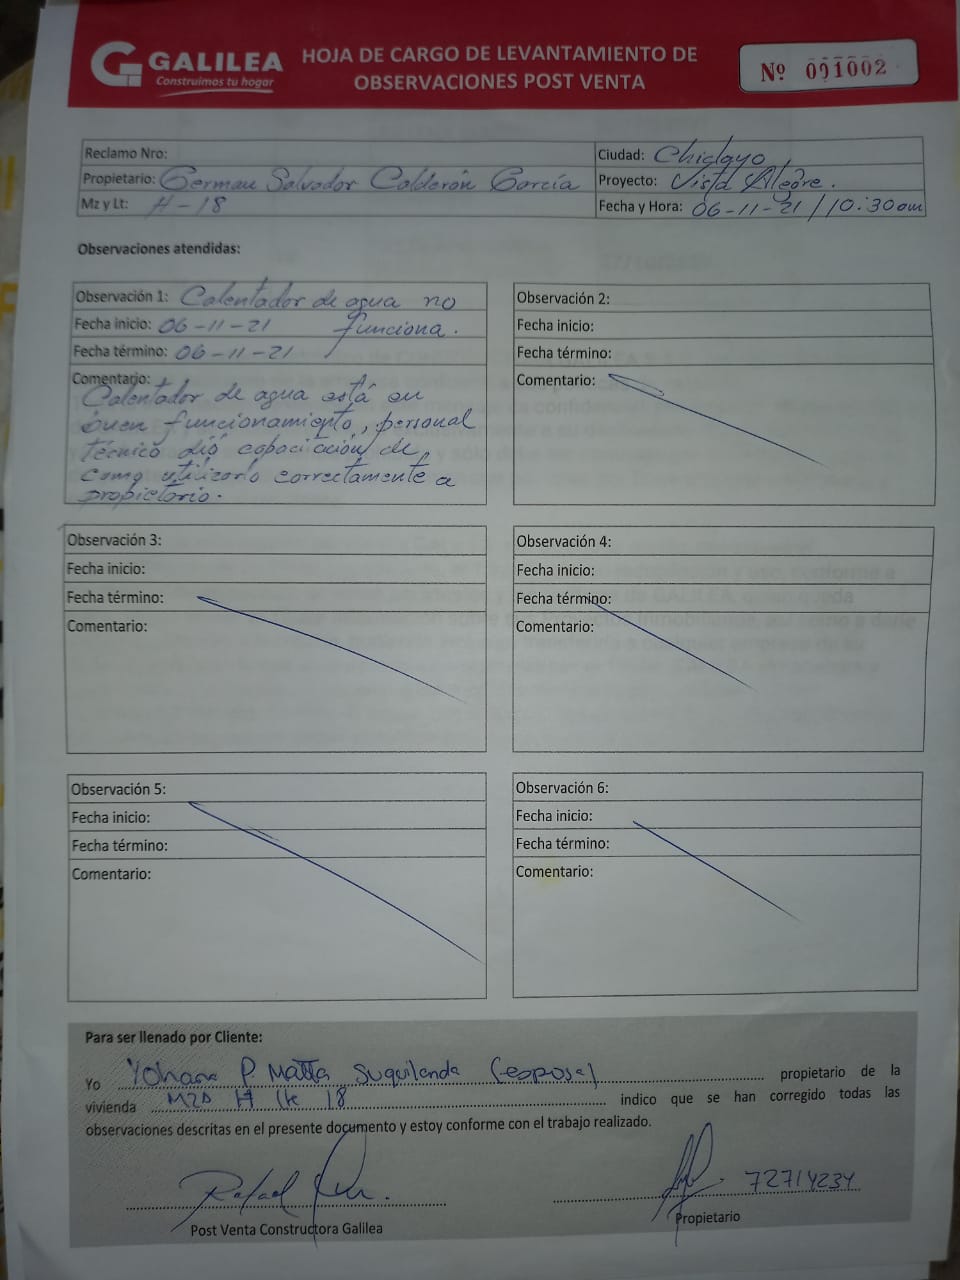 GALILEA
Construimos tu hogar
HOJA DE CARGO DE LEVANTAMIENTO DE
OBSERVACIONES POST VENTA
Nº 001002
Reclamo Nro:
Ciudad: Chiclayo
Propietario: German Salvador Calderón García
Proyecto: Vista Alegre.
Mz y Lt: H-18
Fecha y Hora: 06-11-21 / 10:30 am
Observaciones atendidas:
Observación 1: Calentador de agua no
funciona.
Fecha inicio: 06-11-21
Fecha término: 06-11-21
Comentario:
Calentador de agua está en
buen funcionamiento, personal
técnico dió capacitación de
como utilizarlo correctamente a
propietario.
Observación 2:
Fecha inicio:
Fecha término:
Comentario:
Observación 3:
Fecha inicio:
Fecha término:
Comentario:
Observación 4:
Fecha inicio:
Fecha término:
Comentario:
Observación 5:
Fecha inicio:
Fecha término:
Comentario:
Observación 6:
Fecha inicio:
Fecha término:
Comentario:
Para ser llenado por Cliente:
Yo Yohana P. Matta Suquilanda (esposa) propietario de la
vivienda MZD H lte 18 indico que se han corregido todas las
observaciones descritas en el presente documento y estoy conforme con el trabajo realizado.
Rafael
72714234
Post Venta Constructora Galilea
Propietario